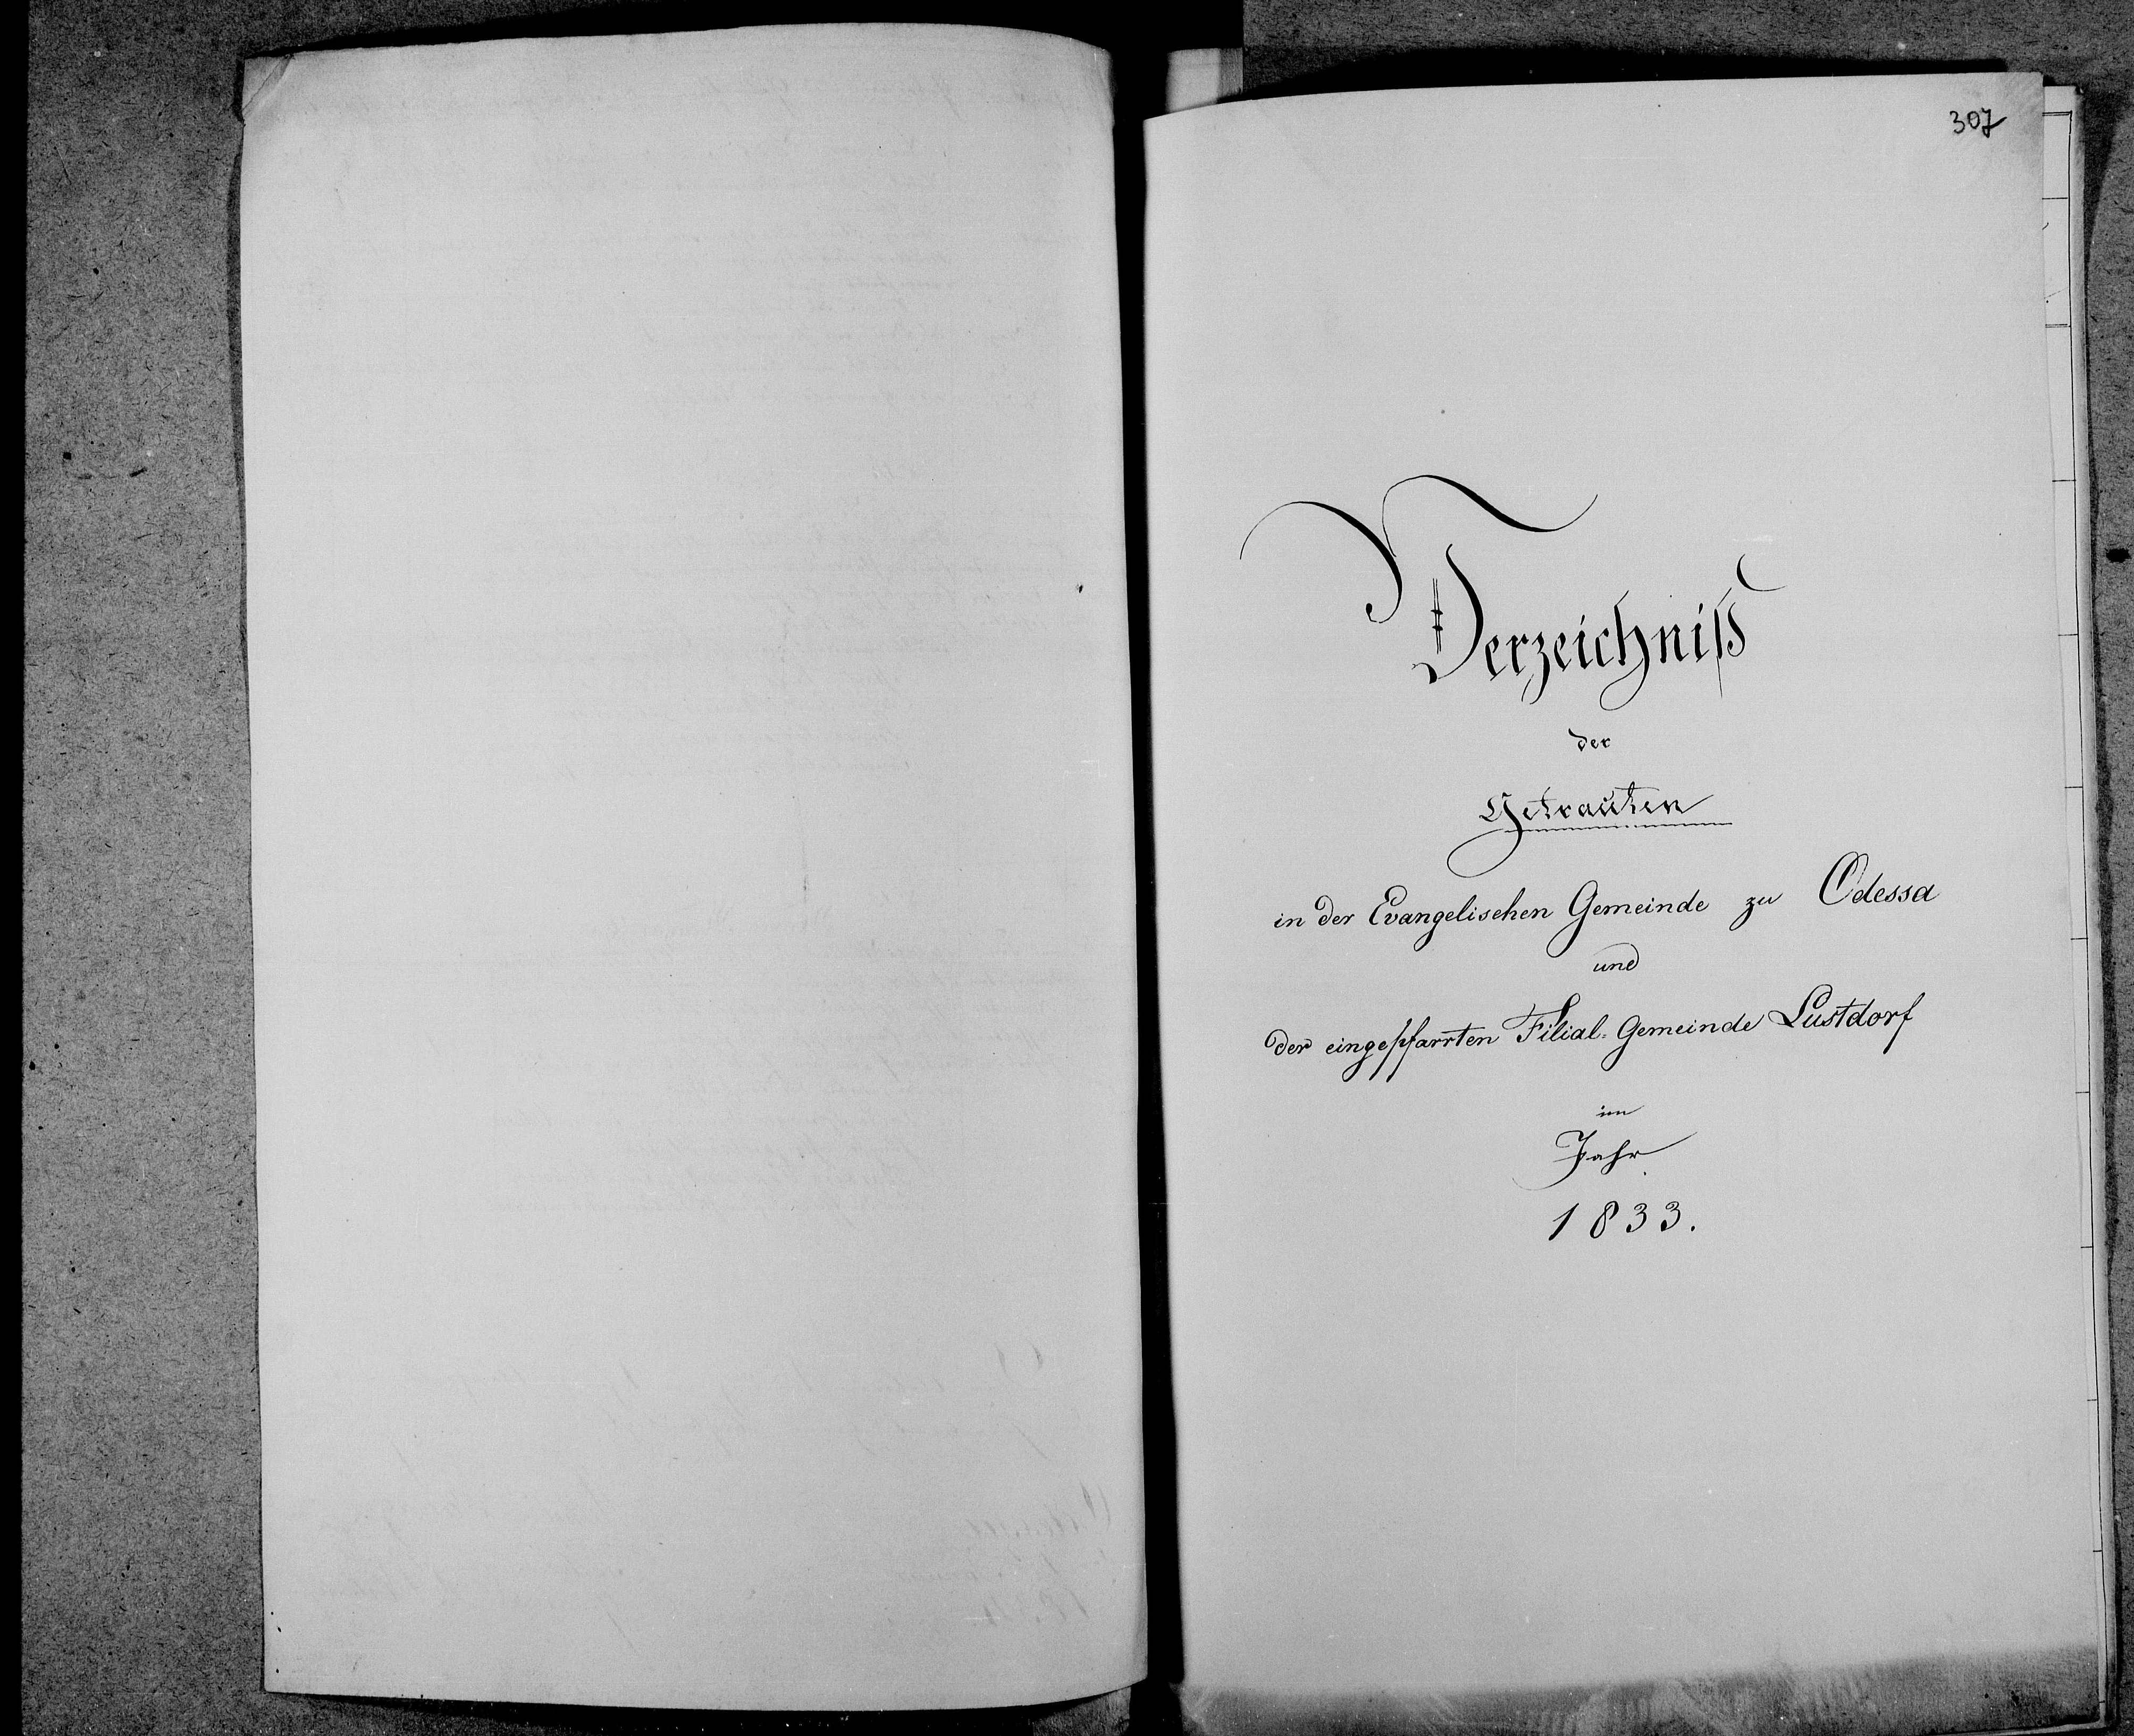 307
Verzeichniß
der
Getrauten
in der Evangelischen Gemeinde zu Odessa
und
der eingepfarrten Filial-Gemeinde Lustdorf
im
Jahr
1833.